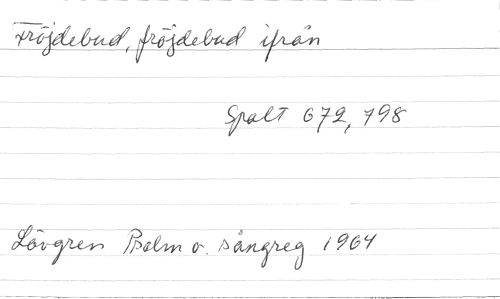 Fröjdebud, fröjdebud ifrån
Spalt 672, 798
Lövgren Psalm o. sångreg 1964